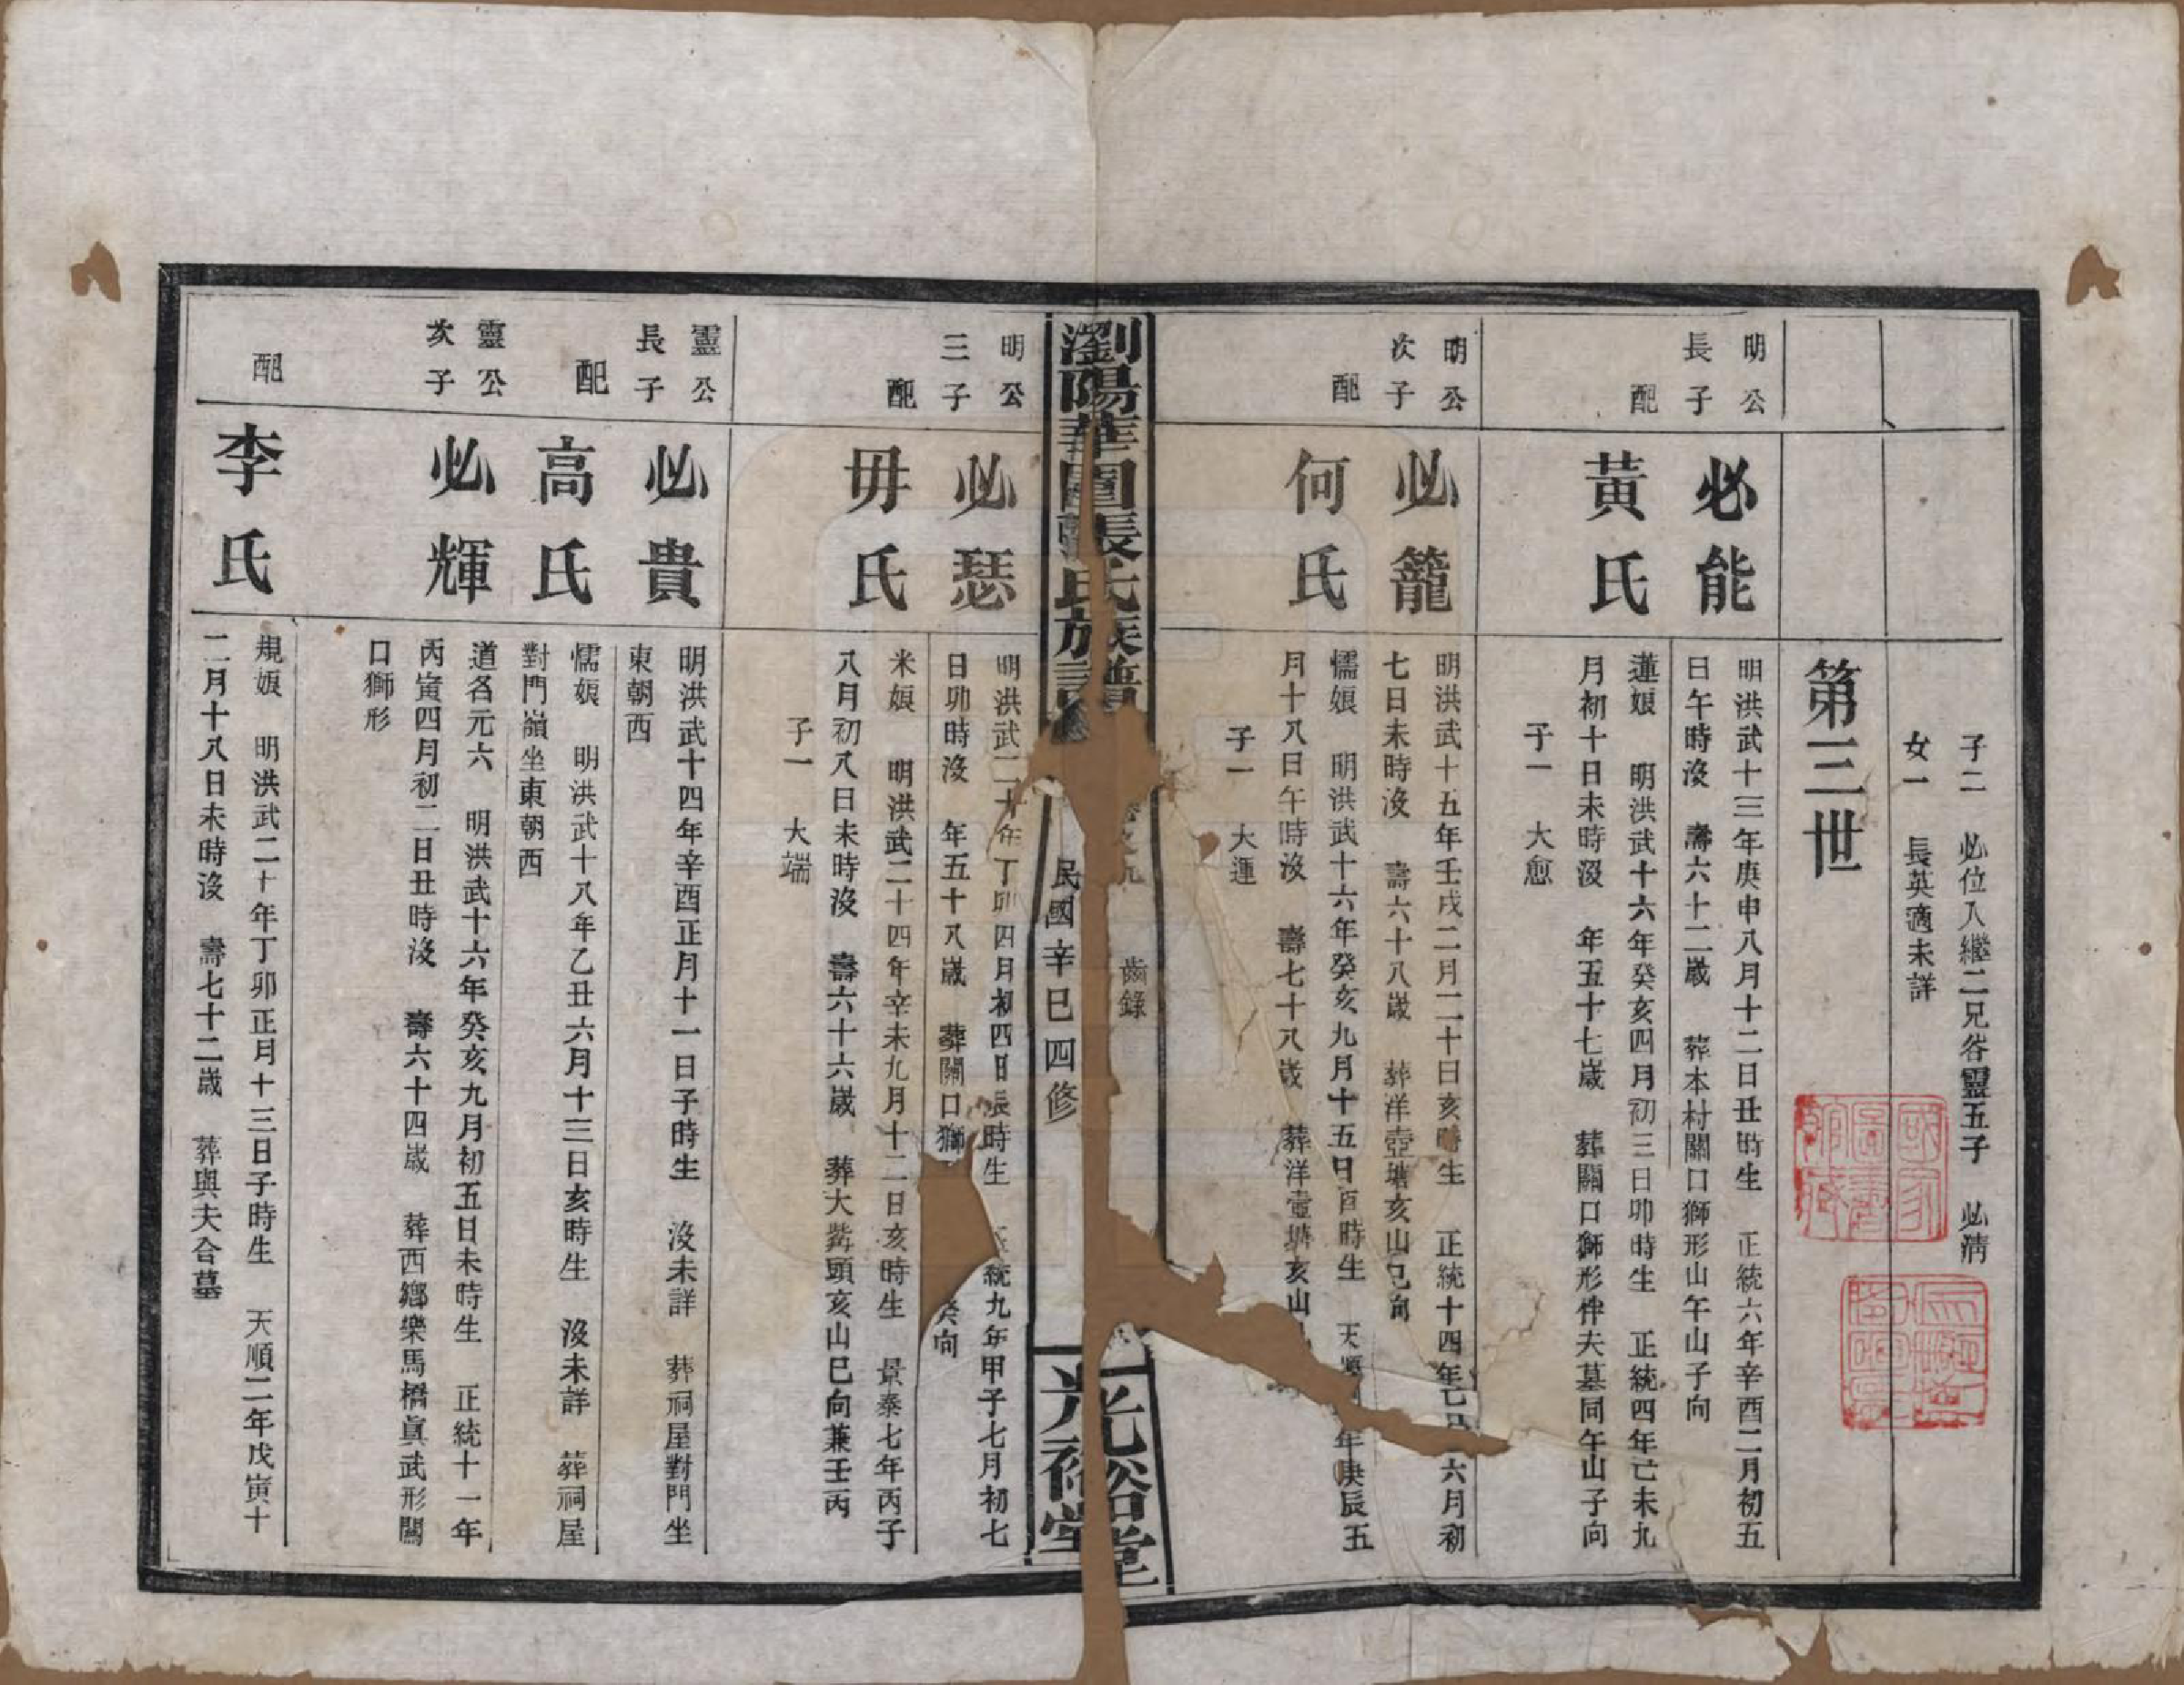 子二　必位入繼二兄谷靈五子　必淸
女一　長英適未詳
第三世
明公
長子
必能
明洪武十三年庚申八月十二日丑時生　正統六年辛酉二月初五
日午時沒　壽六十二歲　葬本村關口獅形山午山子向
配
黃氏
蓮娘　明洪武十六年癸亥四月初三日卯時生　正統四年己未九
月初十日未時沒　年五十七歲　葬關口獅形伴夫墓同午山子向
子一　大愈
明公
次子
必籠
明洪武十五年壬戌二月二十日亥時生　正統十四年己巳六月初
七日未時沒　壽六十八歲　葬洋壺塘亥山巳向
配
何氏
懦娘　明洪武十六年癸亥九月十五日酉時生　天順年庚辰五
月十八日午時沒　壽七十八歲　葬洋壺塘亥山
子一　大運
瀏陽華園張氏族譜
卷之九　齒錄
民國辛巳四修
光裕堂
明公
三子
必瑟
明洪武二十年丁卯四月初四日辰時生　統九年甲子七月初七
日卯時沒　年五十八歲　葬關口獅癸向
配
毋氏
米娘　明洪武二十四年辛未九月十二日亥時生　景泰七年丙子
八月初八日未時沒　壽六十六歲　葬大嵅頭亥山巳向兼壬丙
子一　大端
靈公
長子
必貴
明洪武十四年辛酉正月十一日子時生　沒未詳　葬祠屋對門坐
東朝西
配
高氏
懦娘　明洪武十八年乙丑六月十三日亥時生　沒未詳　葬祠屋
對門嶺坐東朝西
靈公
次子
必輝
道名元六　明洪武十六年癸亥九月初五日未時生　正統十一年
丙寅四月初二日丑時沒　壽六十四歲　葬西鄉樂馬橋眞武形關
口獅形
配
李氏
規娘　明洪武二十年丁卯正月十三日子時生　天順二年戊寅十
二月十八日未時沒　壽七十二歲　葬與夫合墓